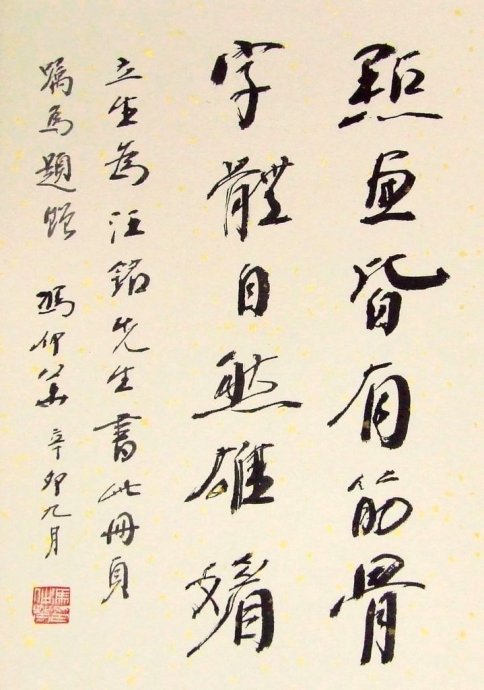 點画皆有筋骨
字體自然雄媚
立生為汪銘先生書此冊頁
嘱為題贈 馮仲華 辛卯九月